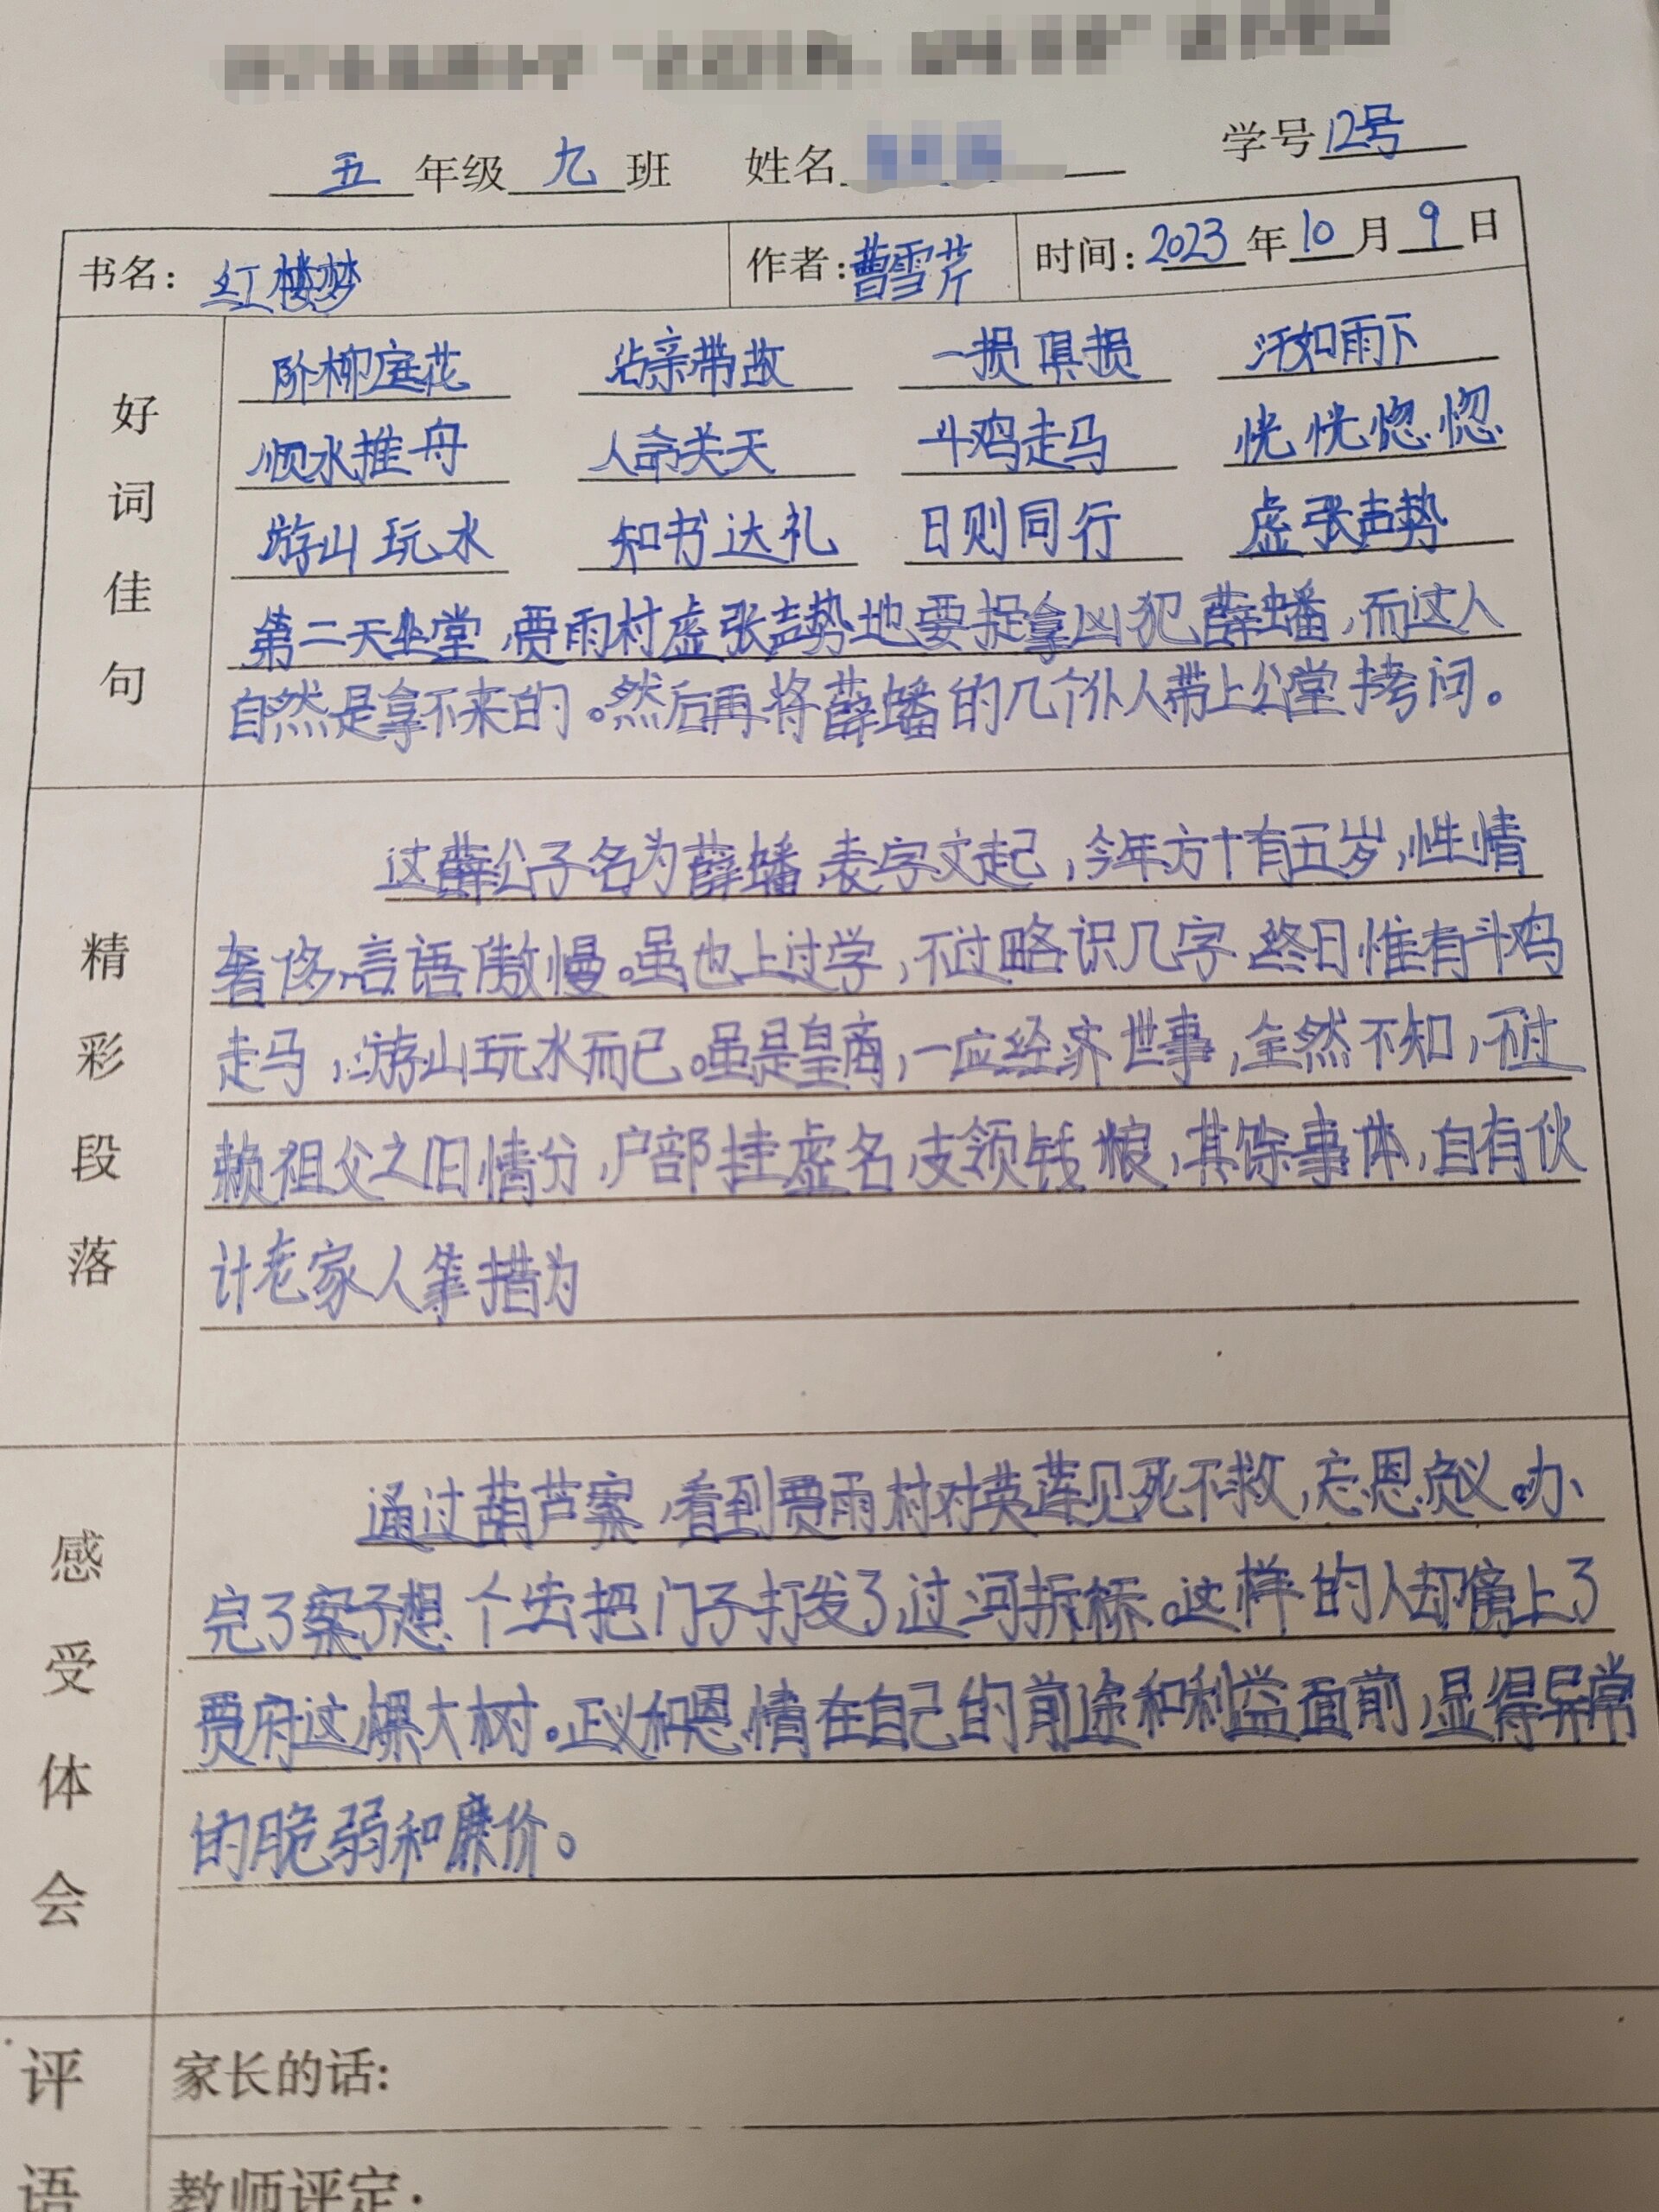 五年级九班 姓名 学号12号
书名：红楼梦 作者：曹雪芹 时间：2023年10月9日
好词佳句
阶柳庭花 沾亲带故 一损俱损 汗如雨下
顺水推舟 人命关天 斗鸡走马 恍恍惚惚
游山玩水 知书达礼 日则同行 虚张声势
第二天坐堂，贾雨村虚张声势地要捉拿凶犯薛蟠，而这人
自然是拿不来的。然后再将薛蟠的几个仆人带上公堂拷问。
精彩段落
这薛公子名为薛蟠，表字文起，今年方十有五岁，性情
奢侈，言语傲慢。虽也上过学，不过略识几字，终日惟有斗鸡
走马，游山玩水而已。虽是皇商，一应经济世事，全然不知，不过
赖祖父之旧情分，户部挂虚名，支领钱粮，其馀事体，自有伙
计老家人等措为
感受体会
通过葫芦案，看到贾雨村对英莲见死不救，忘恩负义。办
完了案子想个法把门子打发了，过河拆桥。这样的人却傍上了
贾府这棵大树。正义和恩情在自己的前途和利益面前，显得异常
的脆弱和廉价。
评语
家长的话：
教师评定：